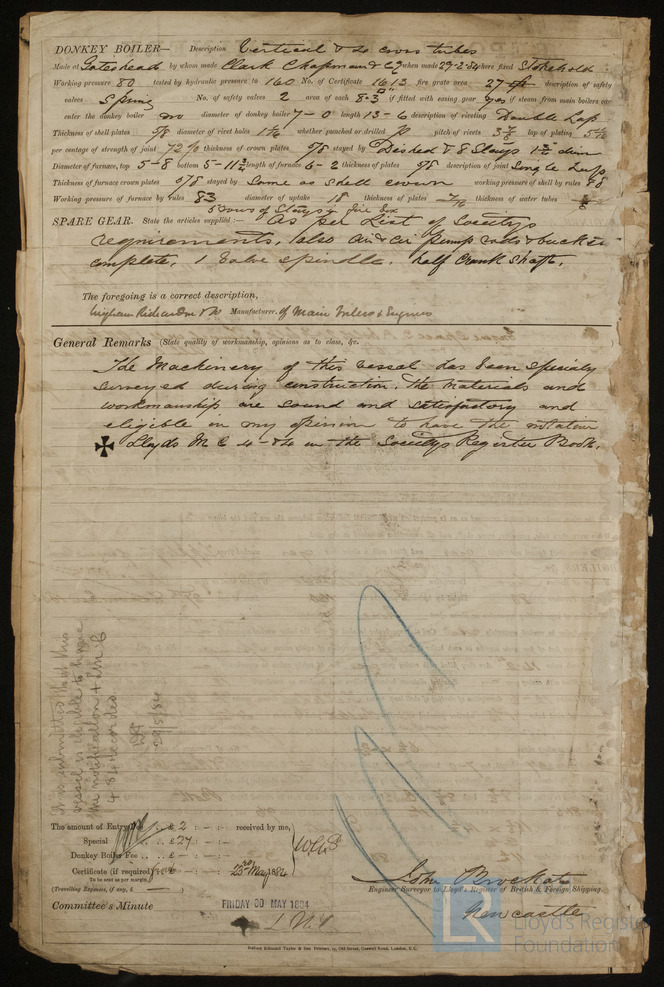 DONKEY BOILER— Description Vertical & 4 cross tubes
Made at Gateshead by whom made Clark Chapman & Co when made 29-2-84 where fixed Stokehold
Working pressure 80 tested by hydraulic pressure to 160 No. of Certificate 1613 fire grate area 27 description of safety
valves Spring No. of safety valves 2 area of each 8.3 if fitted with easing gear yes if steam from main boilers can
enter the donkey boiler no diameter of donkey boiler 7-0 length 13-6 description of riveting Double Lap
Thickness of shell plates diameter of rivet holes whether punched or drilled pitch of rivets lap of plating
per centage of strength of joint 72% thickness of crown plates stayed by Dished & 8 Stays diam
Diameter of furnace, top 5-8 bottom length of furnace 6-2 thickness of plates description of joint Single Lap
Thickness of furnace crown plates stayed by Same as shell crown working pressure of shell by rules 88
Working pressure of furnace by rules 83 diameter of uptake 18 thickness of plates thickness of water tubes
5 rows of Stays in fire box
SPARE GEAR. State the articles supplied:— As per List of Societys
requirements, also air & cir pump rods & bucket
complete, 1 Valve spindle. half crank shaft.
The foregoing is a correct description,
Wigham Richardson & Co Manufacturer. of Main Boilers & Engines
General Remarks (State quality of workmanship, opinions as to class, &c.
The Machinery of this vessel has been specialy
surveyed during construction. The materials and
workmanship are sound and satisfactory and
eligible in my opinion to have the notation
✠ Lloyds M C 4-84 in the Societys Register Book.
It is submitted that this
vessel is eligible to have
the notification + LMC
4 84 recorded
29/5/84
The amount of Entry Fee .. £ 2 : - : - received by me,
Special .. £ 27 : - : -
Donkey Boiler Fee .. £ — : - : -
Certificate (if required) £ : - : - 23rd May 1884
To be sent as per margin.
(Travelling Expenses, if any, £ — )
John Brockat
Engineer Surveyor to Lloyd's Register of British & Foreign Shipping.
Newcastle
Committee's Minute FRIDAY 30 MAY 1884
Lloyd's Register
Foundation